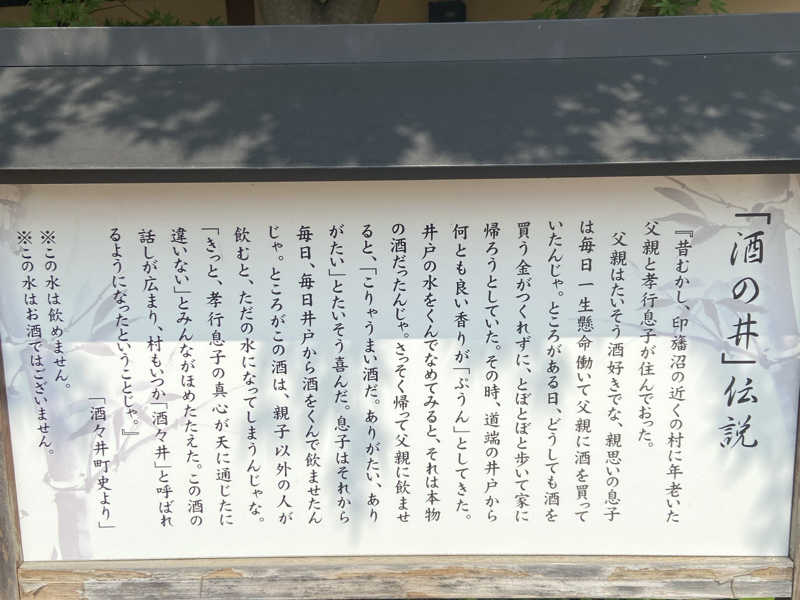 「酒の井」伝説
『昔むかし、印旛沼の近くの村に年老いた
父親と孝行息子が住んでおった。
父親はたいそう酒好きでな、親思いの息子
は毎日一生懸命働いて父親に酒を買って
いたんじゃ。ところがある日、どうしても酒を
買う金がつくれずに、とぼとぼと歩いて家に
帰ろうとしていた。その時、道端の井戸から
何とも良い香りが「ぷうん」としてきた。
井戸の水をくんでなめてみると、それは本物
の酒だったんじゃ。さっそく帰って父親に飲ませ
ると、「こりゃうまい酒だ。ありがたい、あり
がたい」とたいそう喜んだ。息子はそれから
毎日、毎日井戸から酒をくんで飲ませたん
じゃ。ところがこの酒は、親子以外の人が
飲むと、ただの水になってしまうんじゃな。
「きっと、孝行息子の真心が天に通じたに
違いない」とみんながほめたたえた。この酒の
話しが広まり、村もいつか「酒々井」と呼ばれ
るようになったということじゃ。』
「酒々井町史より」
※この水は飲めません。
※この水はお酒ではございません。